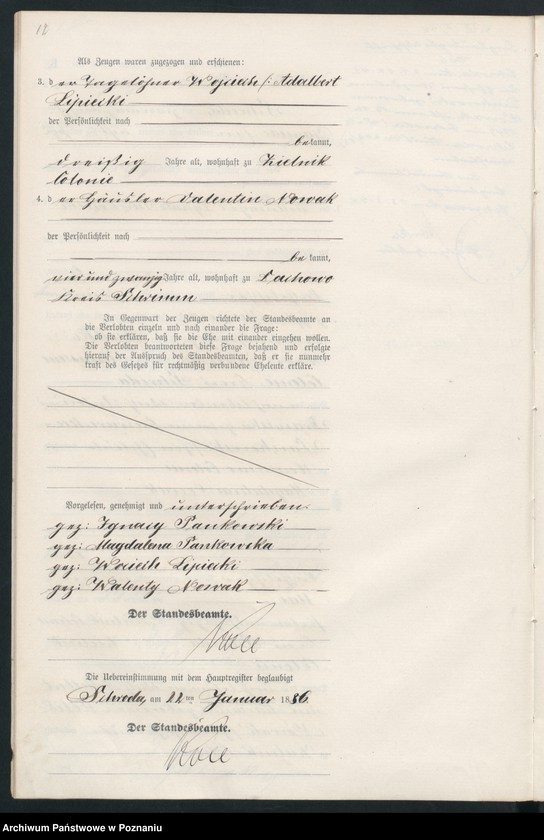 12
Als Zeugen waren zugezogen und erschienen:
3. der Tagelöhner Wojciech /: Adalbert
Lipiecki
der Persönlichkeit nach
bekannt,
dreißig Jahre alt, wohnhaft zu Zielnik
Colonie
4. der Häusler Valentin Nowak
der Persönlichkeit nach
bekannt,
vier und zwanzig Jahre alt, wohnhaft zu
Kreis Schrimm
In Gegenwart der Zeugen richtete der Standesbeamte an
die Verlobten einzeln und nach einander die Frage:
ob sie erklären, daß sie die Ehe mit einander eingehen wollen.
Die Verlobten beantworteten diese Frage bejahend und erfolgte
hierauf der Ausspruch des Standesbeamten, daß er sie nunmehr
kraft des Gesetzes für rechtmäßig verbundene Eheleute erkläre.
Vorgelesen, genehmigt und unterschrieben:
gez: Ignacy Pankowski
gez: Magdalena Pankowska
gez: Wociech Lipiecki
gez: Walenty Nowak
Der Standesbeamte.
Die Uebereinstimmung mit dem Hauptregister beglaubigt
Schroda, am 22 ten Januar 1886
Der Standesbeamte.
Archiwum Państwowe w Poznaniu